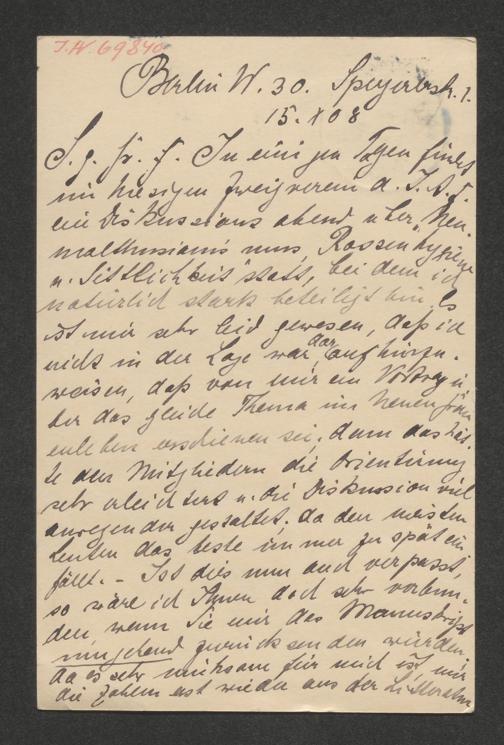 I.N. 69840
Berlin W. 30. Speyererstr. 1.
15. X 08
S. g. Fr. F. In einigen Tagen findet
im hiesigen Zweigverein d. I. A. F.
ein Diskussions abend über „Neu-
malthusianismus, Rassenhygiene
u. Sittlichkeit" statt, bei dem ich
natürlich stark beteiligt bin. Es
ist mir sehr leid gewesen, daß ich
nicht in der Lage war darauf hinzu-
weisen, daß von mir ein Vortrag ü-
ber das gleiche Thema im Neuen Frau
enleben erschienen sei, denn das hät-
te den Mitgliedern die Orientierung
sehr erleichtert u. die Diskussion viel
anregender gestaltet, da den meisten
Leuten das beste immer zu spät ein
fällt. – Ist dies nun auch verpasst,
so wäre ich Ihnen doch sehr verbun-
den, wenn Sie mir das Manuskript
umgehend zurücksenden würden
da es sehr mühsam für mich ist, mir
die Zahlen erst wieder aus der Litteratur